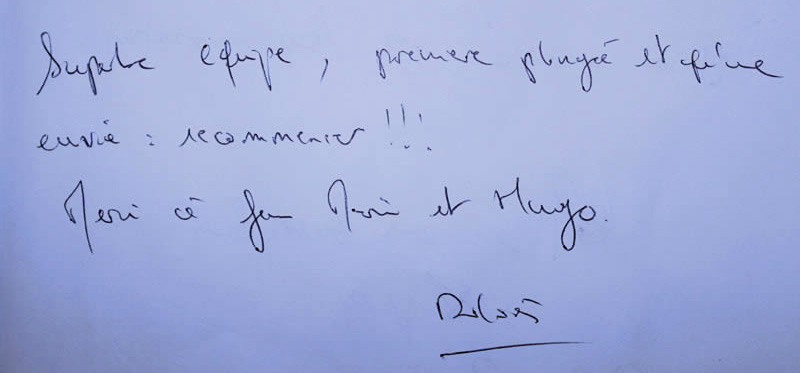 Superbe équipe, première plongée et qu'une
envie : recommencer !!!
Merci à Jean Marie et Hugo.